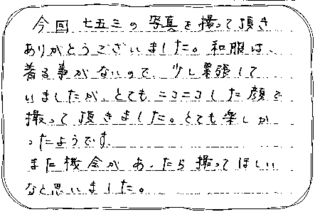 今回 七五三の写真を撮って頂き
ありがとうございました。和服は、
着る事がないので、少し緊張して
いましたが、とてもニコニコした顔で
撮って頂きました。とても楽しか
ったようです。
また機会があったら撮ってほしい
なと思いました。